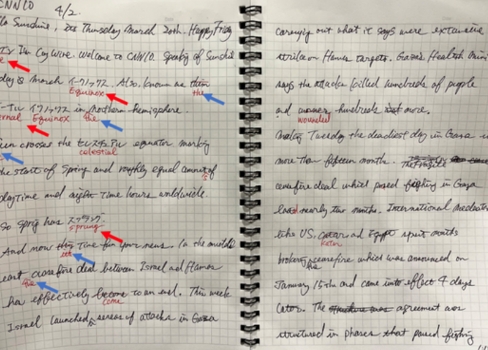 CNN10 4/2.
lo Sunshine, It's Thursday March 20th. Happy Friday
I'm Coy Wire. Welcome to CNN10. Speaking of Sunshine
day is March イクイノックス. Also known as the
Equinox the
イクイノックス in northern hemisphere.
ernal Equinox the
crosses the equator marking
celestial
the start of Spring and roughly equal amount of
daytime and night time hours worldwide.
So spring has スプラング.
sprung
And now time for your news. In the middle
the
east ceasefire deal between Israel and Hamas
the
has effectively become to an end. This week
come
Israel launched a series of attacks in Gaza
carrying out what it says were extensive
strikes on Hamas targets. Gaza's Health Mini
says the attacks killed hundreds of people
and hundreds more.
wounded
Tuesday the deadliest day in Gaza
more than fifteen months. The
ceasefire deal which paused fighting in Gaza
nearly two months. International mediators
like US. and Egypt spent months
Qatar
brokering ceasefire which was announced on
the
January 15th and came into effect 4 days
later. The agreement was
structured in phases that paused fighting